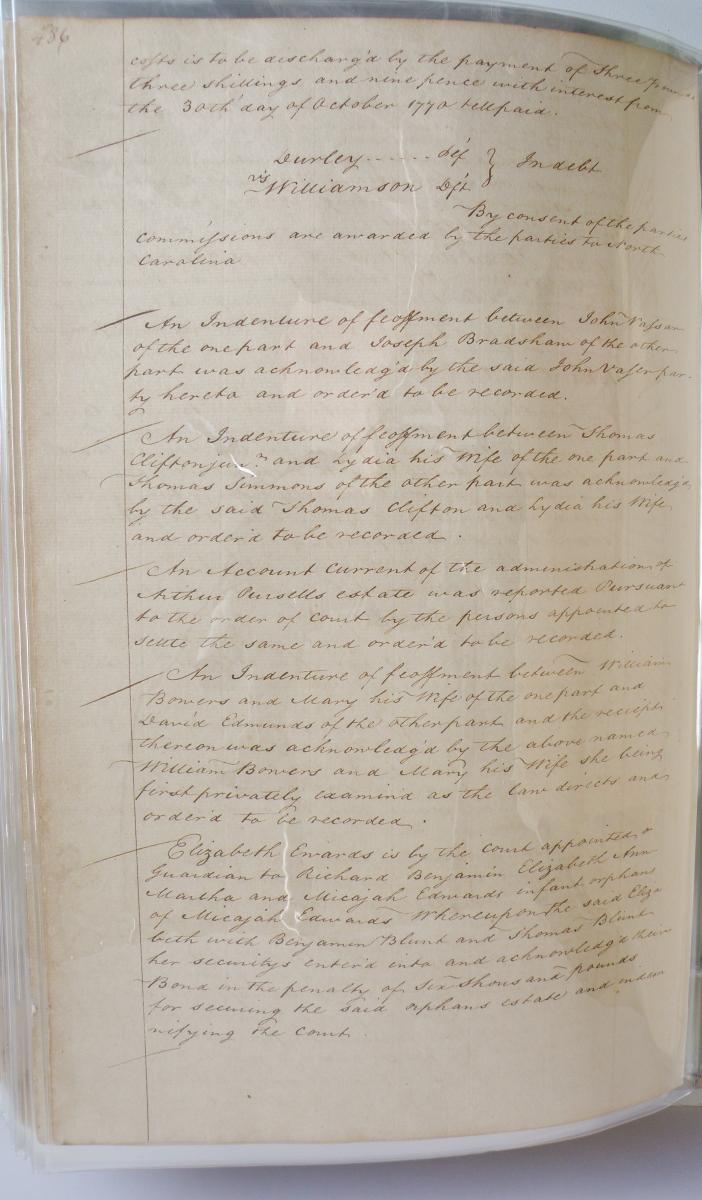 486
costs is to be discharg'd by the payment of Three
three shillings and nine pence with interest from
the 30th day of October 1770 till paid.
Durley ...... Plf } In debt
vs Williamson Dft
By consent of the parties
Commissions are awarded by the parties to North
Carolina
An Indenture of feoffment between John Vasser
of the one part and Joseph Bradshaw of the other
part was acknowledg'd by the said John Vaser par
ty hereto and order'd to be recorded.
An Indenture of feoffment between Thomas
Clifton junr and Lydia his Wife of the one part and
Thomas Simmons of the other part was acknowledg'd
by the said Thomas Clifton and Lydia his Wife
and order'd to be recorded.
An Account Current of the administration of
Arthur Pursells estate was reported Pursuant
to the order of court by the persons appointed to
settle the same and order'd to be recorded.
An Indenture of feoffment between William
Bowers and Mary his Wife of the one part and
David Edmunds of the other part and the reciept
thereon was acknowledg'd by the above named
William Bowers and Mary his Wife she being
first privately examin'd as the law directs and
order'd to be recorded.
Elizabeth Erwards is by the Court appointed
Guardian to Richard Benjamin Elizabeth Ann
Martha and Micajah Edwards infant orphans
of Micajah Edwards Whereupon the said Eliza
beth with Benjamin Blunt and Thomas Blunt
her securitys enter'd into and acknowledg'd their
Bond in the penalty of Six thousand pounds
for securing the said orphans estate and indem
nifying the Court.